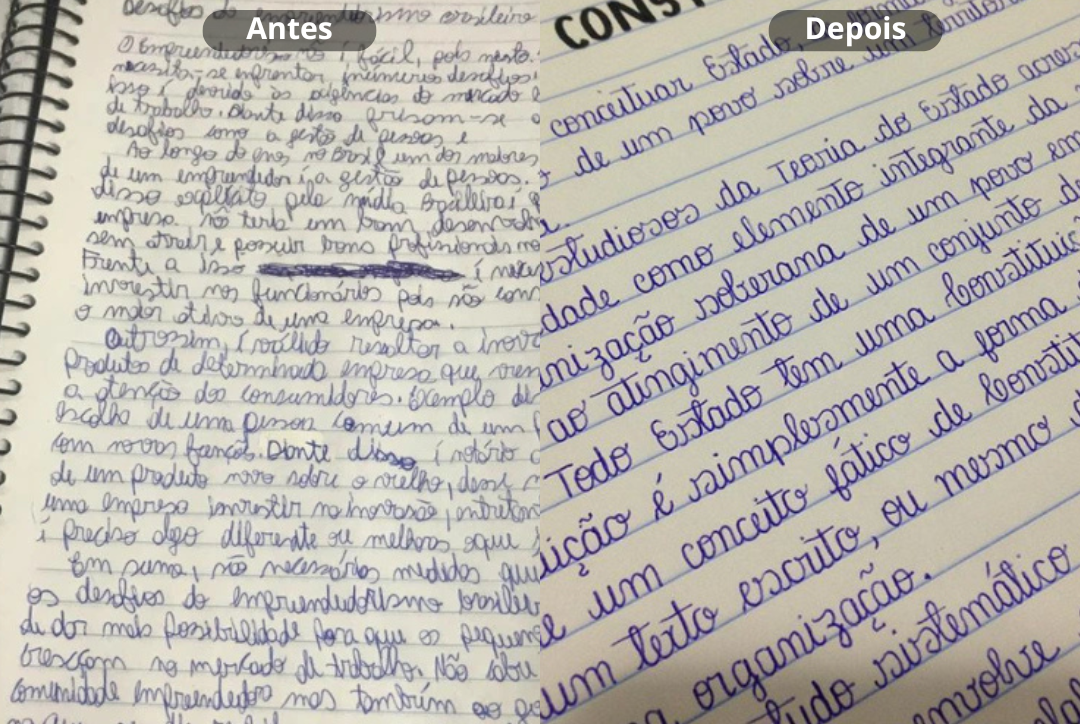 Antes
Desafios do empreendedorismo brasileiro
O Empreendedorismo não é fácil, pois nesta
necessita-se enfrentar inúmeros desafios
isso é devido às exigências do mercado
de trabalho. Diante disso presam-se
desafios como a gestão de pessoas e
Ao longo do anos no Brasil um dos maiores
de um empreendedor é a gestão de pessoas.
disso explícito pela mídia brasileira
empresa não teria um bom
sem atrair e possuir bons profissionais
Frente a isso é
investir nos funcionários pois são
o maior ativo de uma empresa.
Outrossim, é válido resaltar a
produtos de determinada empresa que
a atenção dos consumidores. Exemplo
escolha de uma pessoa comum de um
com novas funções. Diante disso é notório
de um produto novo sobre o velho,
uma empresa investir na inovasão, entretanto
é preciso algo diferente ou melhor
Em suma, são necessários medidas que
os desafios do empreendedorismo
de dar mais possibilidade para que os
cresçam no mercado de trabalho. Não
comunidade empreendedora mas também
Depois
CONST
conceituar Estado,
de um povo sobre um
estudiosos da Teoria do Estado
dade como elemento integrante da
nização soberana de um povo em
ao atingimento de um conjunto de
Todo Estado tem uma
ição é simplesmente a forma
e um conceito fático de
um texto escrito, ou mesmo
a organização.
tudo sistemático
envolve